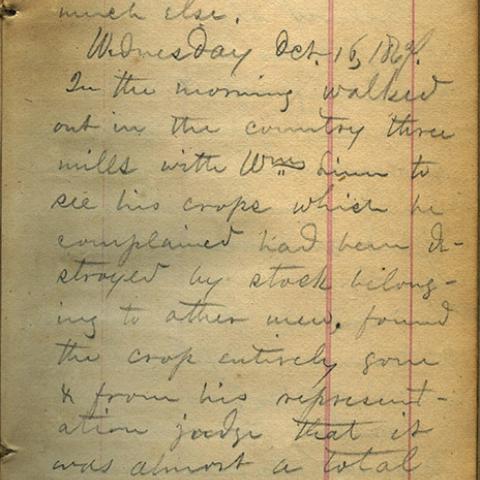 much else.
Wednesday Oct. 16, 186
In the morning walked
out in the country three
mills with Wms Linn to
see his crops which he
complained had been de-
stroyed by stock belong-
ing to other men, found
the crop entirely gone
& from his represent-
ation judge that it
was almost a total